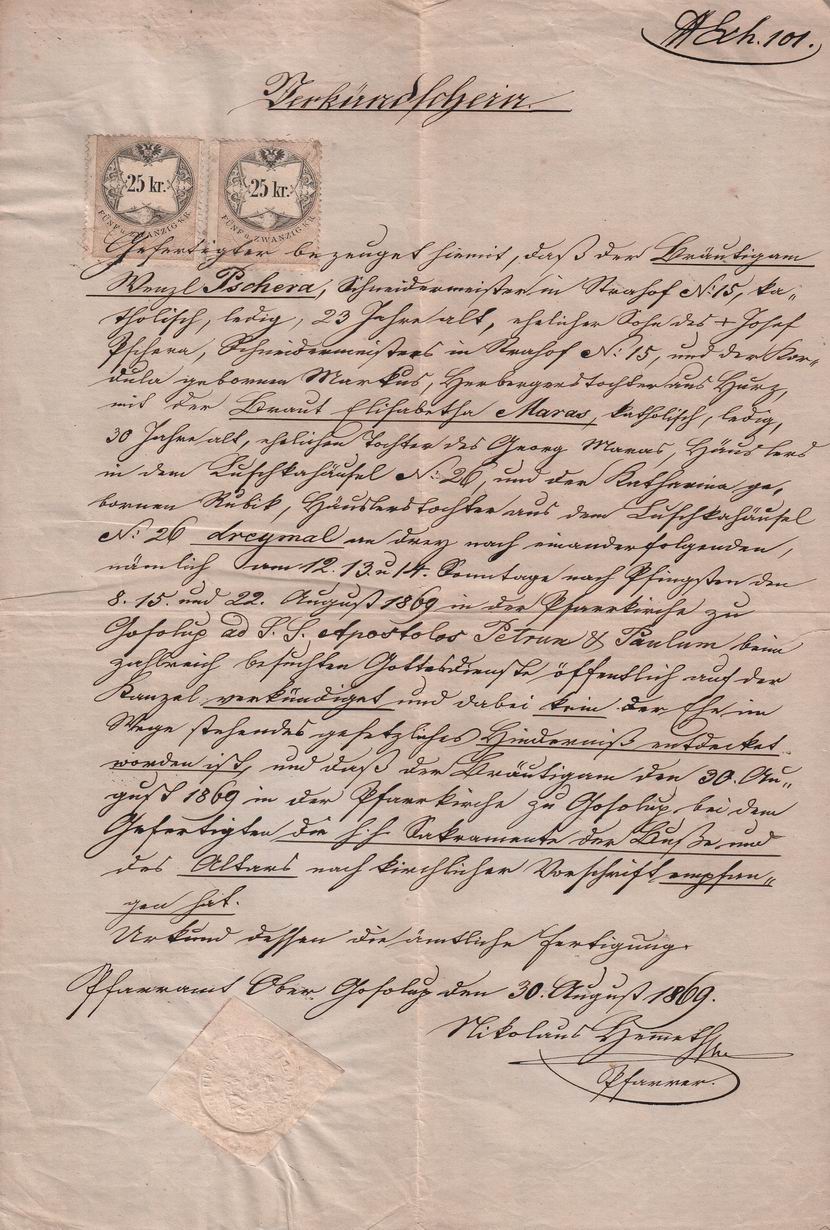 Exh. 101.
Verkündschein.
25 kr.
FÜNF u. ZWANZIG KR.
25 kr.
FÜNF u. ZWANZIG KR.
Gefertigter bezeuget hiemit, daß der Bräutigam
Wenzl Pschera, Schneidermeister in Strahof N: 15, ka-
tholisch, ledig, 23 Jahre alt, ehelicher Sohn des + Josef
Pschera, Schneidermeisters in Strahof N: 15, und der Kor-
dula gebornen Markus, Herbergerstochter aus Hurz,
mit der Braut Elisabetha Maras, katholisch, ledig,
30 Jahre alt, ehelichen Tochter des Georg Maras, Häuslers
in dem Luschkahäusel N: 26, und der Katharina ge-
bornen Rubik, Häuslerstochter aus dem Luschkahäusel
N: 26 dreymal an drey nach einanderfolgenden,
nämlich am 12. 13. u 14. Sonntage nach Pfingsten den
8. 15. und 22. August 1869 in der Pfarrkirche zu
Gosolup ad S. S. Apostolos Petrum & Paulum beim
zahlreich besuchten Gottesdienste öffentlich auf der
Kanzel verkündiget und dabei kein der Ehe im
Wege stehendes gesetzliches Hinderniß entdecket
worden ist, und daß der Bräutigam den 30. Au-
gust 1869 in der Pfarrkirche zu Gosolup bei dem
Gefertigten die h. h. Sakramente der Buße und
des Altars nach kirchlicher Vorschrift empfan-
gen hat.
Urkund dessen die ämtliche Fertigung.
Pfarramt Ober Gosolup den 30. August 1869.
Nikolaus
Pfarrer.